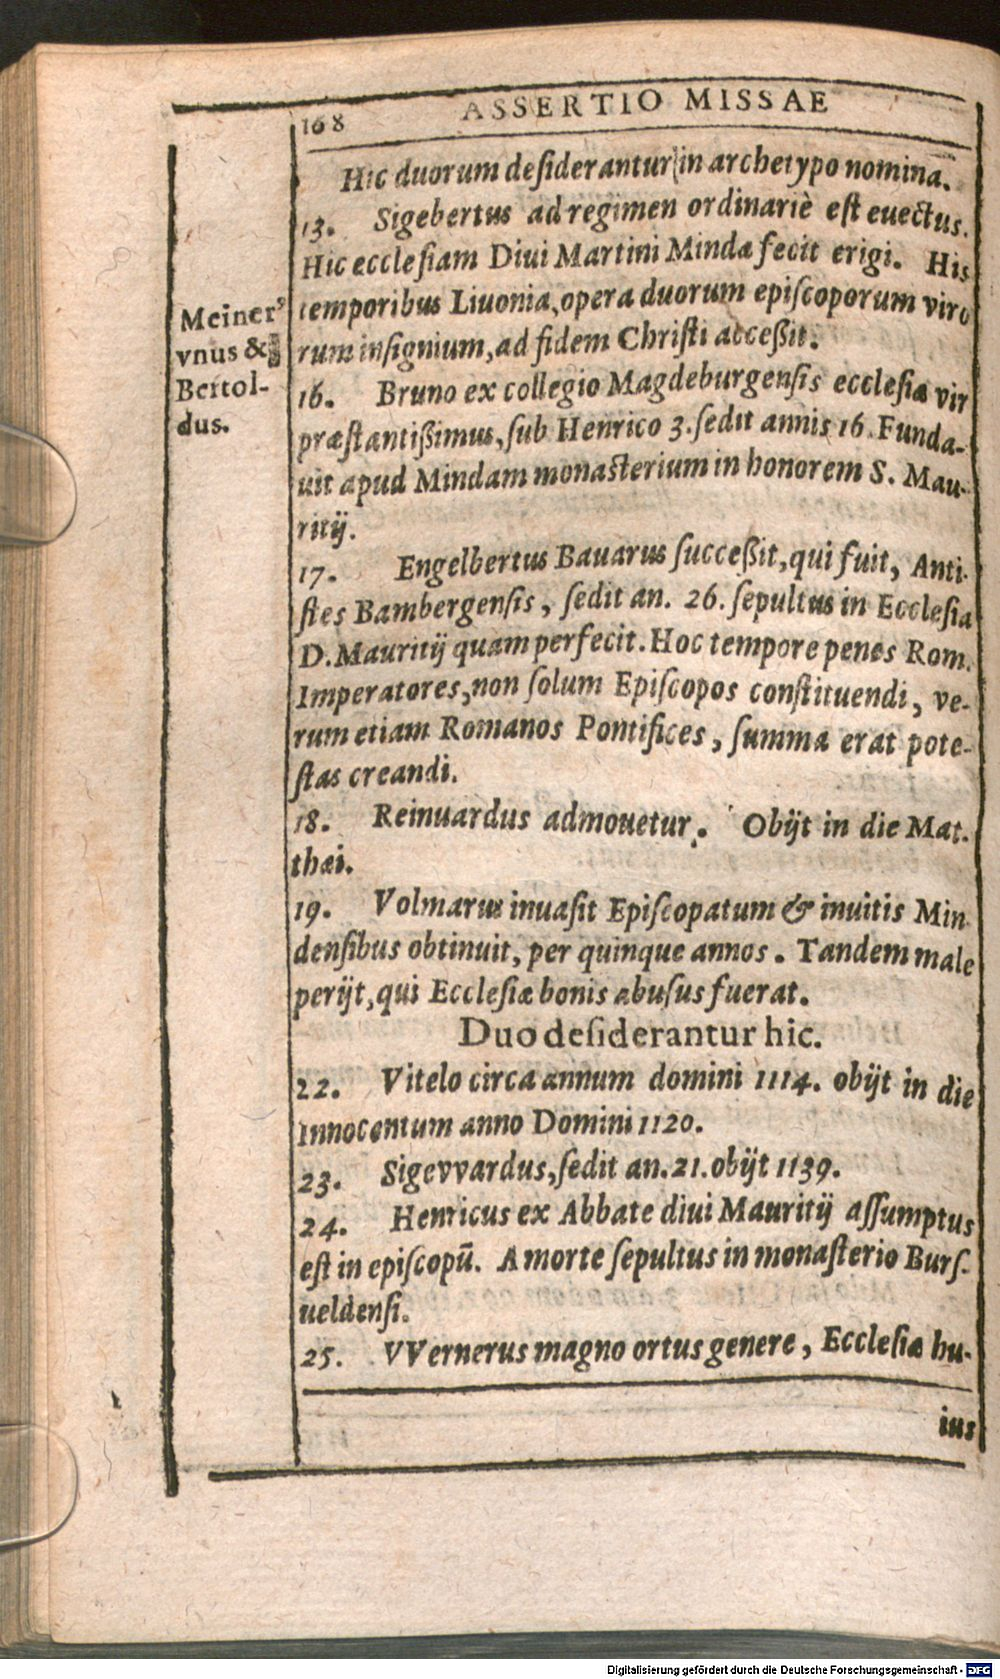 168
ASSERTIO MISSAE
Hic duorum desiderantur in archetypo nomina.
13. Sigebertus ad regimen ordinariè est euectus.
Hic ecclesiam Diui Martini Mindæ fecit erigi. His
temporibus Liuonia, opera duorum episcoporum viro
rum insignium, ad fidem Christi acceßit.
Meiner⁹
vnus &
Bertol-
dus.
16. Bruno ex collegio Magdeburgensis ecclesiæ vir
præstantißimus, sub Henrico 3. sedit annis 16. Funda-
uit apud Mindam monasterium in honorem S. Mau-
ritij.
17. Engelbertus Bauarus succeßit, qui fuit, Anti-
stes Bambergensis, sedit an. 26. sepultus in Ecclesia
D. Mauritij quam perfecit. Hoc tempore penes Rom.
Imperatores, non solum Episcopos constituendi, ve-
rum etiam Romanos Pontifices, summa erat pote-
stas creandi.
18. Reinuardus admouetur. Obijt in die Mat-
thæi.
19. Volmarus inuasit Episcopatum & inuitis Min
densibus obtinuit, per quinque annos. Tandem male
perijt, qui Ecclesiæ bonis abusus fuerat.
Duo desiderantur hic.
22. Vitelo circa annum domini 1114. obijt in die
Innocentum anno Domini 1120.
23. Sigevvardus, sedit an. 21. obijt 1139.
24. Henricus ex Abbate diui Mauritij assumptus
est in episcopū. A morte sepultus in monasterio Burs-
ueldensi.
25. VVernerus magno ortus genere, Ecclesiæ hu-
ius
Digitalisierung gefördert durch die Deutsche Forschungsgemeinschaft - DFG